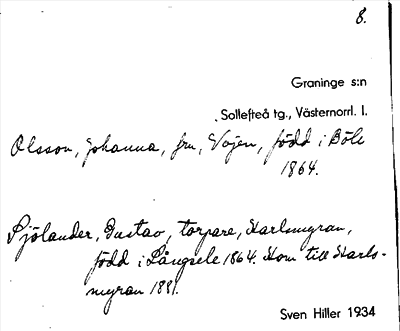 8.
Graninge s:n
Sollefteå tg., Västernorrl. l.
Olsson, Johanna, fru, Vojen, född i Böle
1864.
Sjölander, Gustav, torpare, Karlsmyran,
född i Långsele 1864. Kom till Karls-
myran 1891.
Sven Hiller 1934